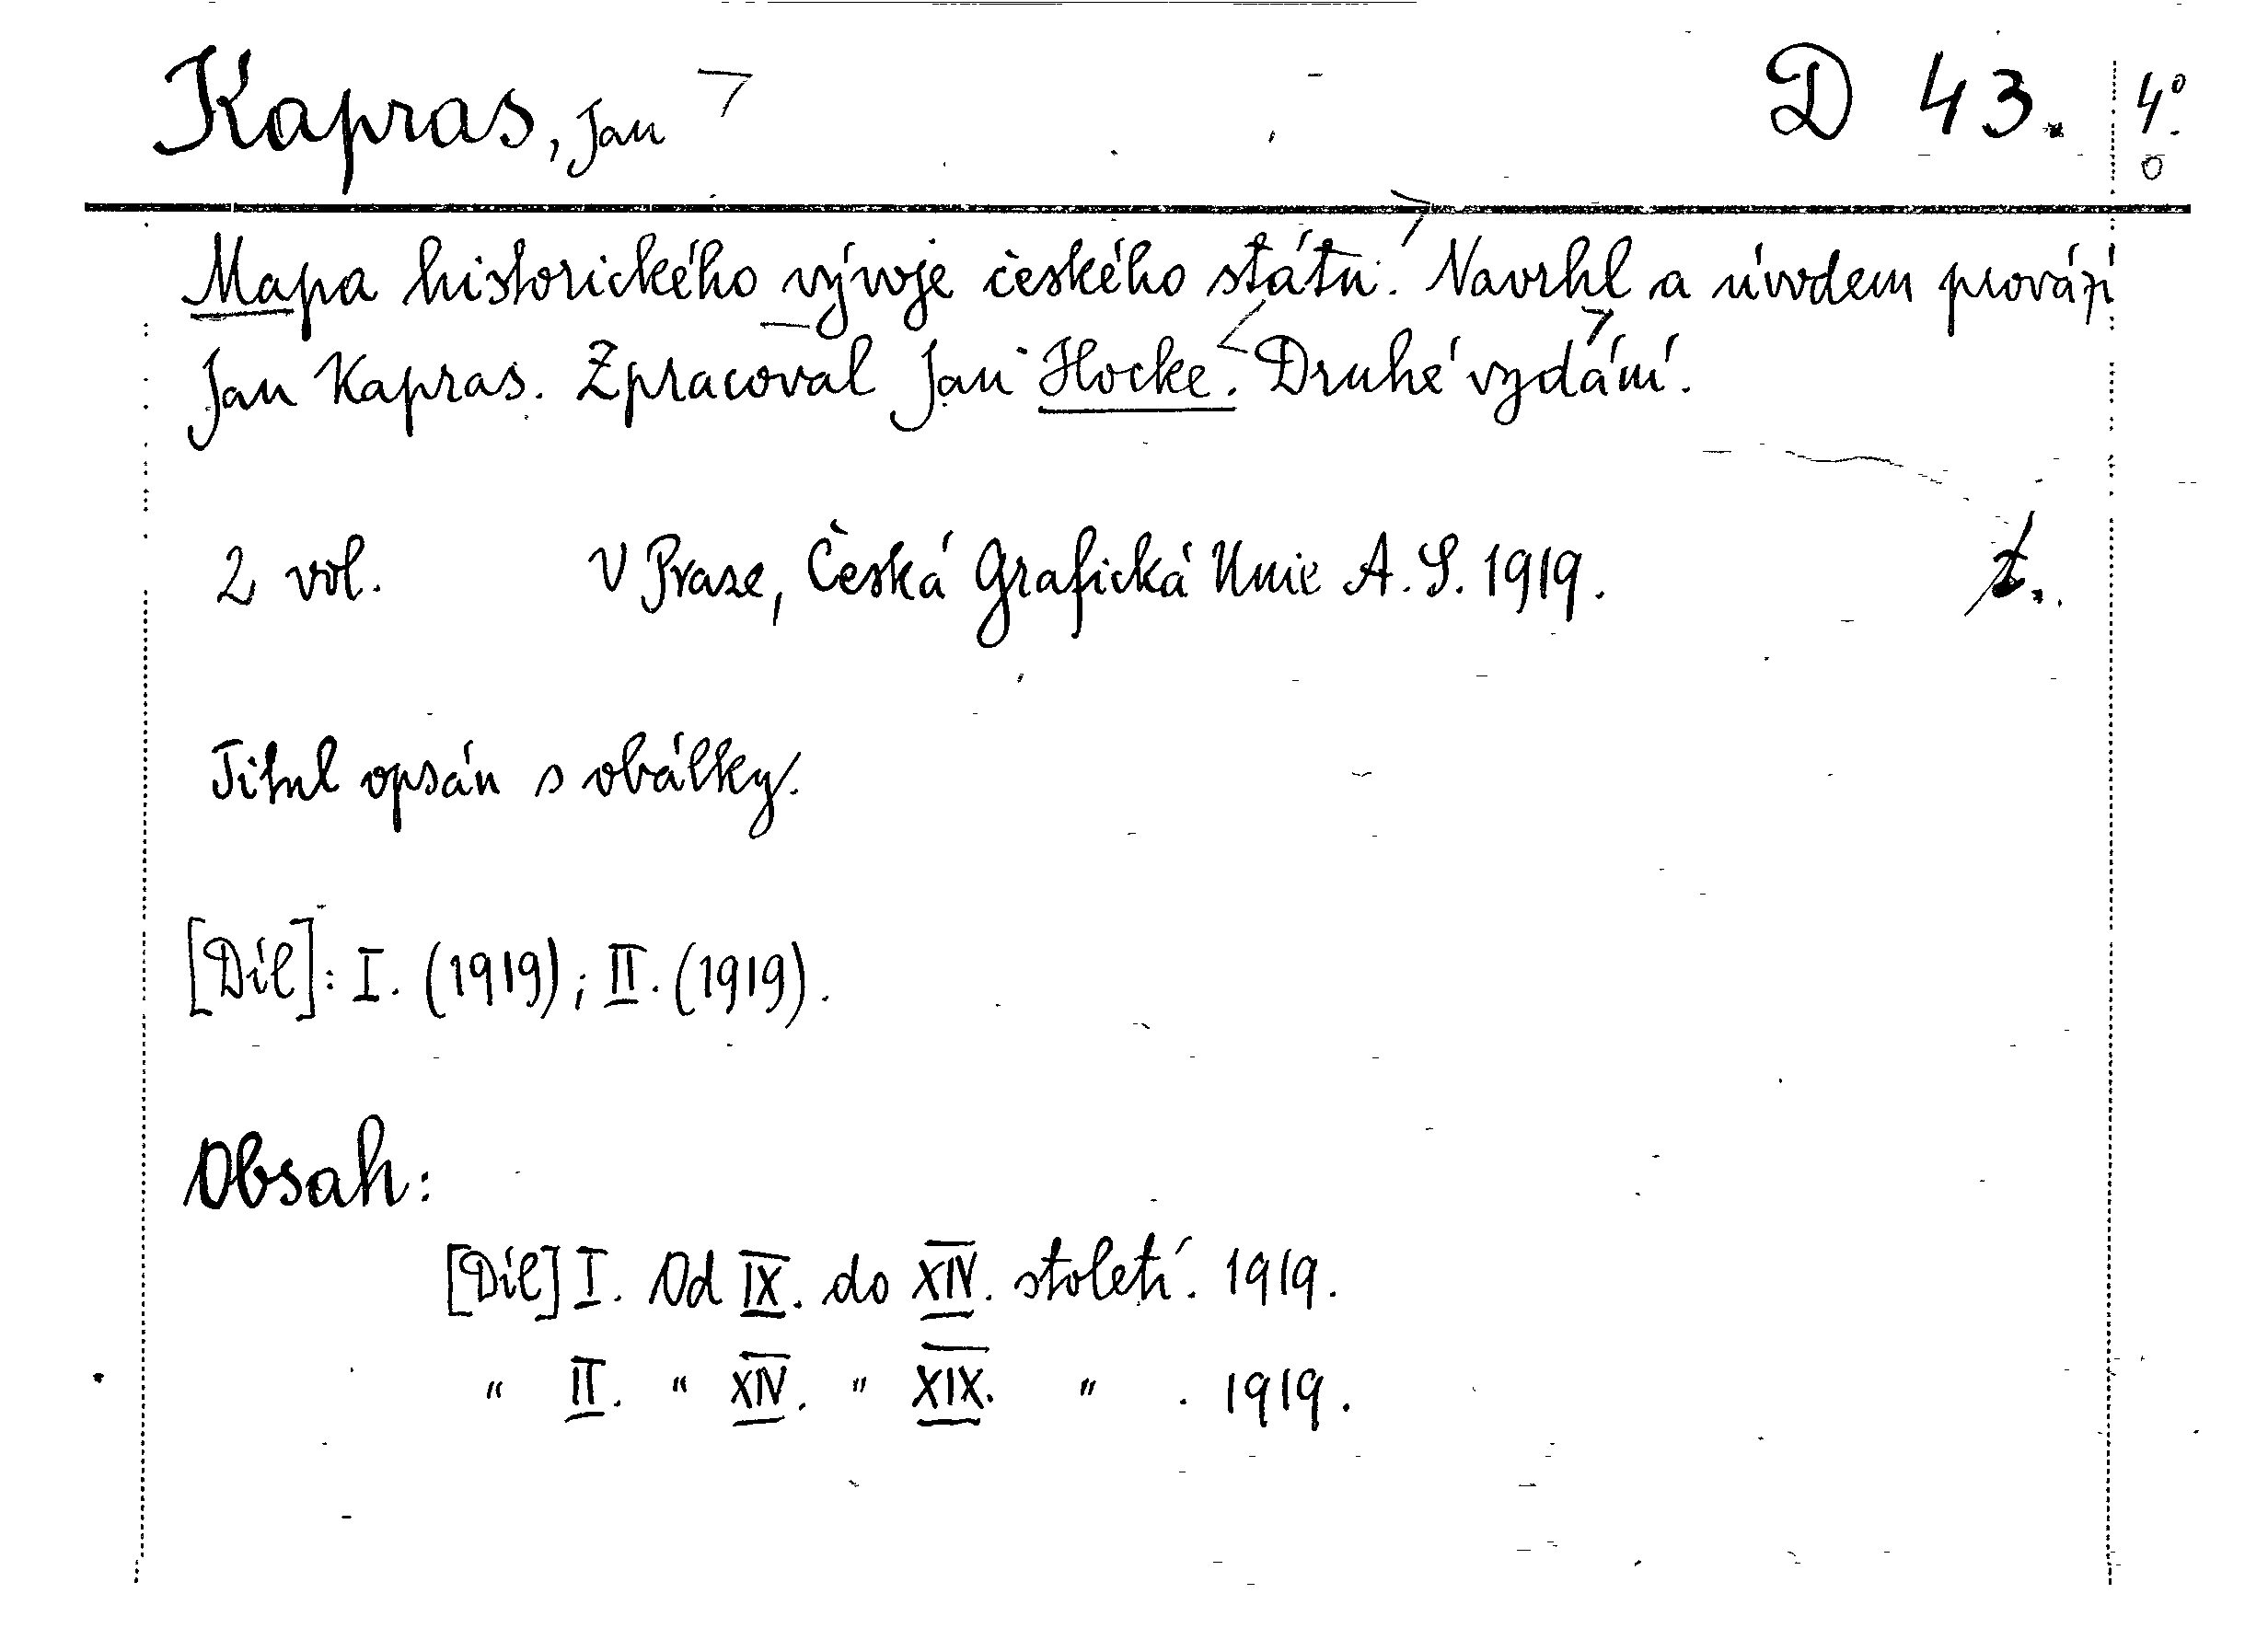 Kapras, Jan D 43. 4°
Mapa historického vývoje českého státu. Navrhl a úvodem provází
Jan Kapras. Zpracoval Jan Hocke. Druhé vydání.
2 vol. V Praze, Česká Grafická Unie A. S. 1919.
Titul opsán s obálky.
[Díl]: I. (1919); II. (1919).
Obsah:
[Díl] I. Od IX. do XIV. století. 1919.
" II. " XIV. " XIX. " . 1919.